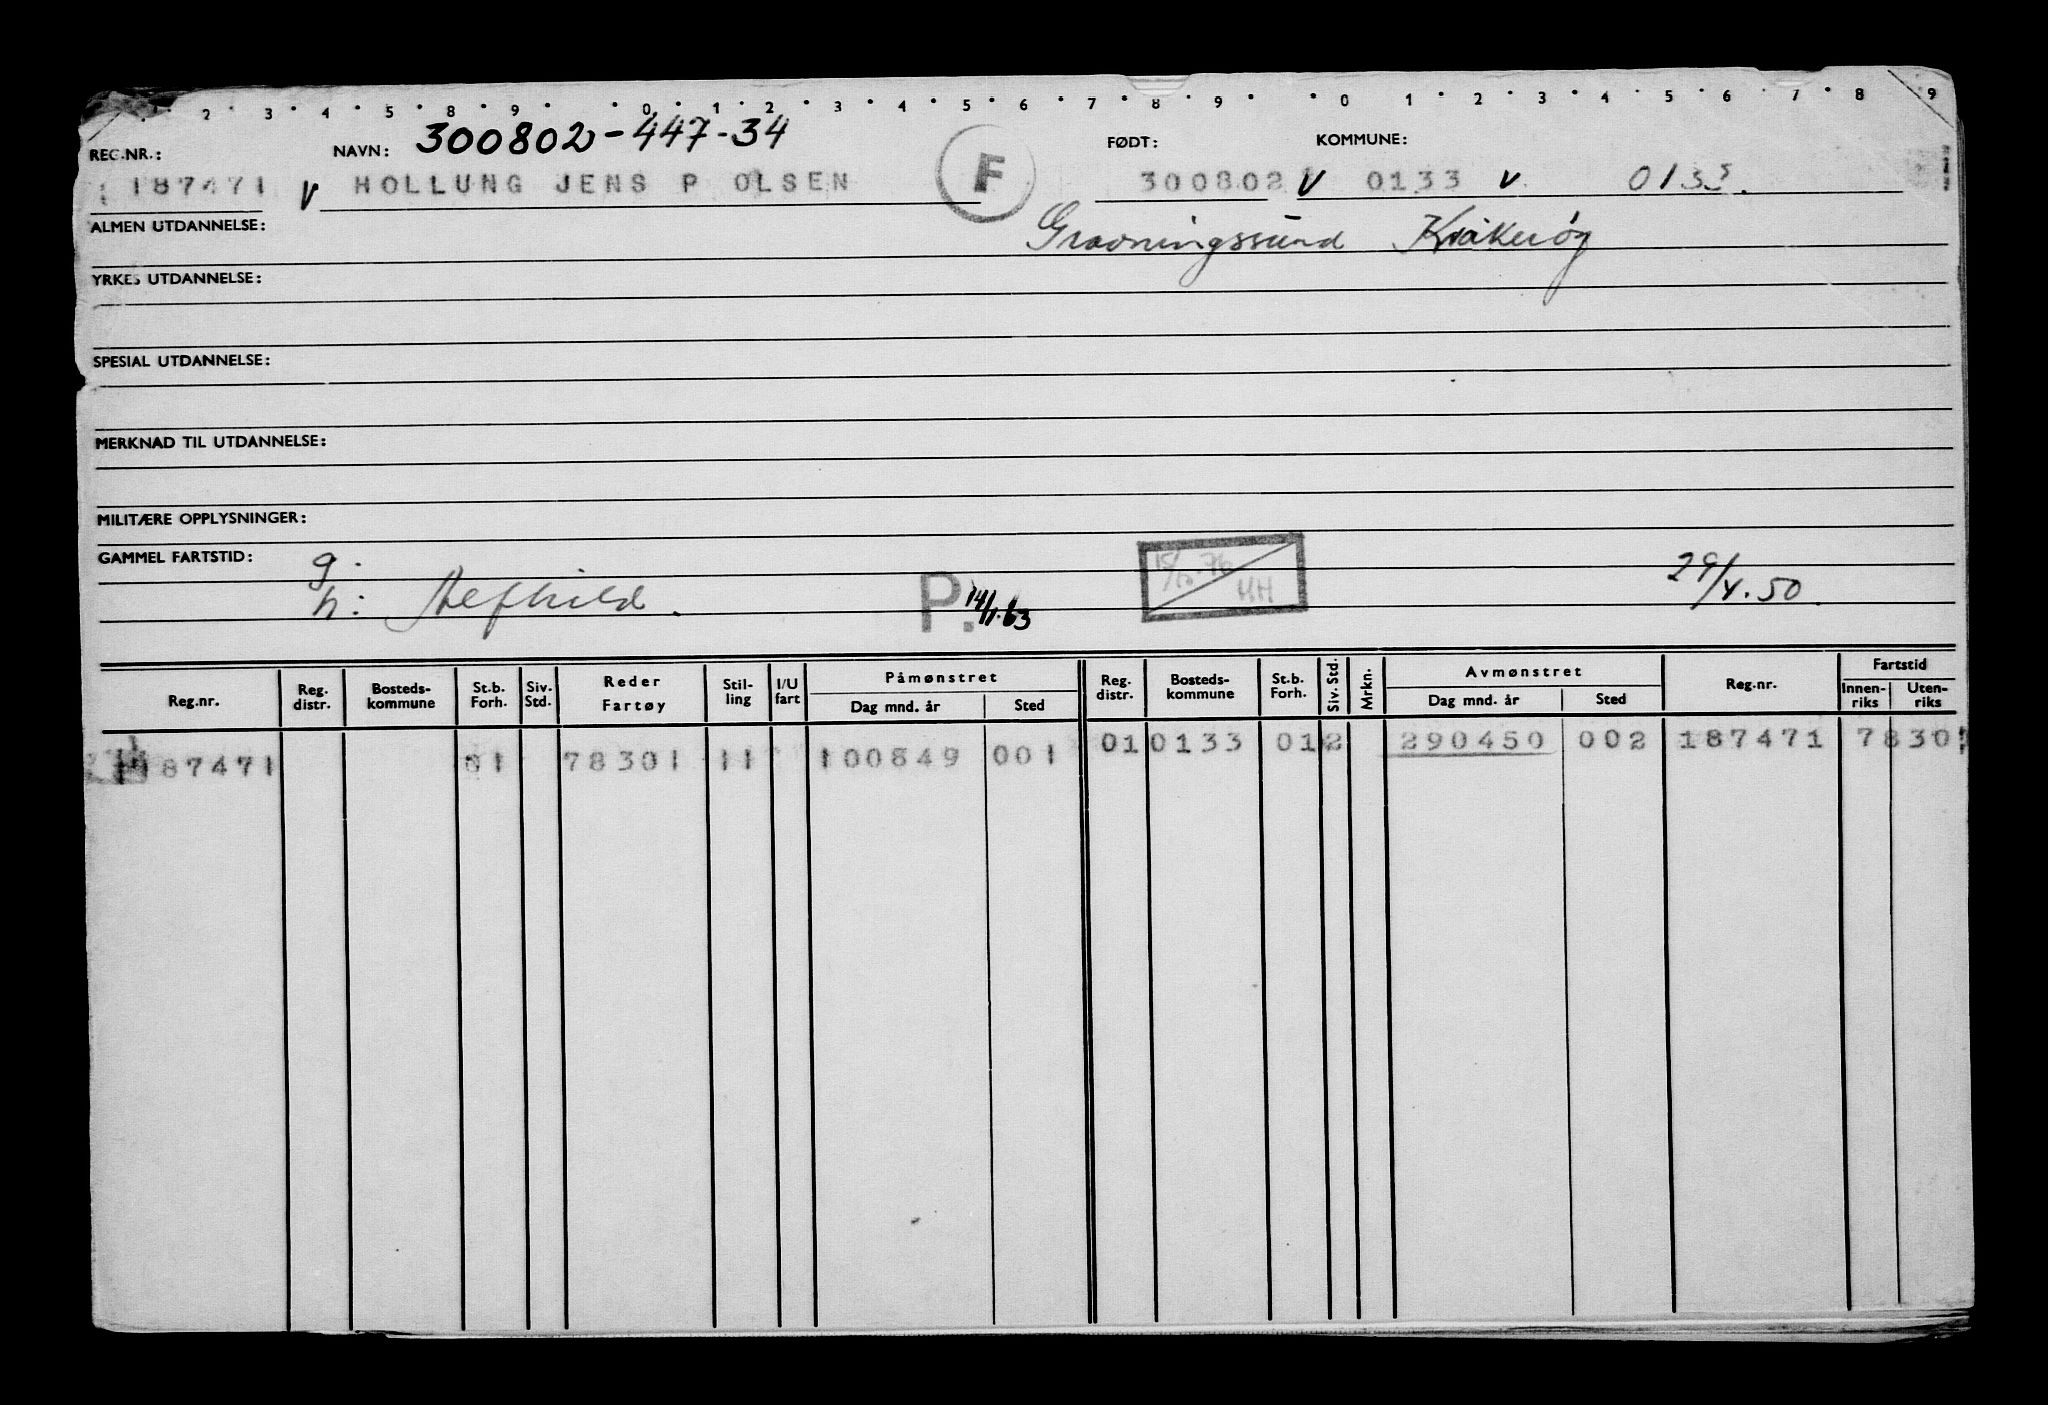 2 3 4 5 8 9 0 1 2 3 4 5 6 7 8 9 0 1 2 3 4 5 6 7 8 9
REG.NR.: NAVN: 300802-447-34 FØDT: KOMMUNE:
187471 V HOLLUNG JENS P OLSEN F 300802 V 0133 V 0133.
ALMEN UTDANNELSE: Gravningssund Kråkerøy
YRKES UTDANNELSE:
SPESIAL UTDANNELSE:
MERKNAD TIL UTDANNELSE:
MILITÆRE OPPLYSNINGER:
GAMMEL FARTSTID: g. 29/4.50.
h: P. 14/1.63 HH
Reg.nr. Reg. distr. Bosteds- kommune St.b. Forh. Siv. Std. Reder Fartøy Stil- ling I/U fart Påmønstret Dag mnd. år Sted Reg. distr. Bosteds- kommune St.b. Forh. Siv. Std. Mrkn. Avmønstret Dag mnd. år Sted Reg.nr. Fartstid Innen- riks Uten- riks
187471 01 78301 11 100849 001 01 0133 01 2 290450 002 187471 78301